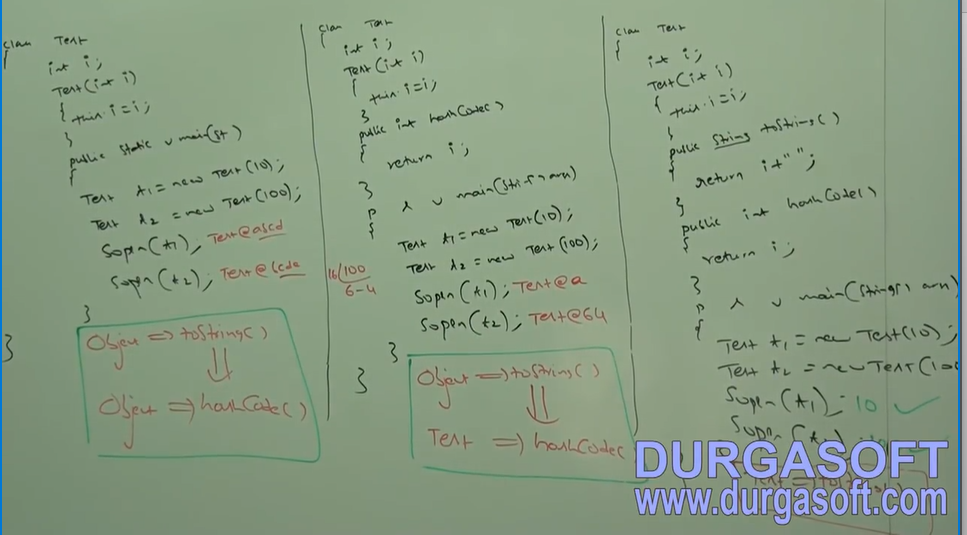 class Test
{
int i;
Test(int i)
{
this.i=i;
}
public static v main(St)
{
Test t1 = new Test(10);
Test t2 = new Test(100);
Sopln(t1); Test@abcd
Sopln(t2); Test@6cda
}
}
Object => toString()
Object => hashCode()
class Test
{
int i;
Test(int i)
{
this.i=i;
}
public int hashCode()
{
return i;
}
p s v main(String arr)
{
Test t1 = new Test(10);
Test t2 = new Test(100);
16 100
6-4
Sopln(t1); Test@a
Sopln(t2); Test@64
}
}
Object => toString()
Test => hashCode(
class Test
{
int i;
Test(int i)
{
this.i=i;
}
public String toString()
{
return i+"";
}
public int hashCode()
{
return i;
}
p s v main(String arr)
{
Test t1 = new Test(10);
Test t2 = new Test(100
Sopln(t1); 10 ✓
Sopln(
DURGASOFT
Test => toString()
www.durgasoft.com